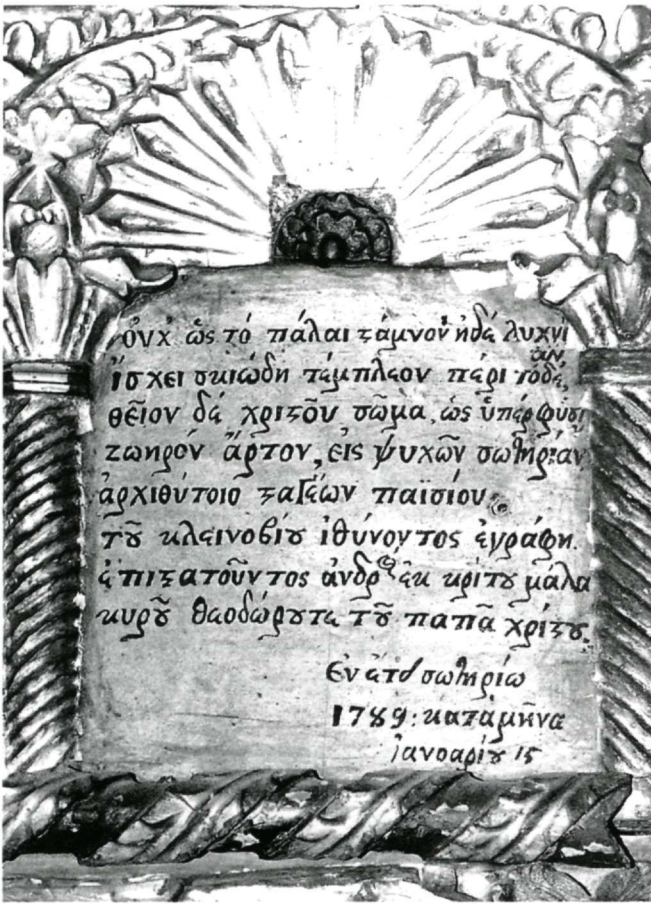 οὐχ ὡς τό πάλαι ϛάμνον ἠδέ λυχνίαν
ἴσχει σκιώδη τέμπλεον πέρι τόδε,
θεῖον δέ χριϛοῦ σῶμα, ὡς ὑπέρφυσι
ζωηρόν ἄρτον, εἰς ψυχῶν σωτηρίαν
ἀρχιθύτοιο παϊσίου
τȣ͂ κλεινοβίȣ ἰθύνοντος ἐγράφη.
ἐπιϛατοῦντος ἀνδρὸς ἐκ κρίτȣ μάλα
κυρȣ͂ θεοδώρȣτε τȣ͂ παπᾶ χρίϛȣ.
Εν ἔτει σωτηρίω
1789: κατάμῆνα
ἰανοαρίȣ 15